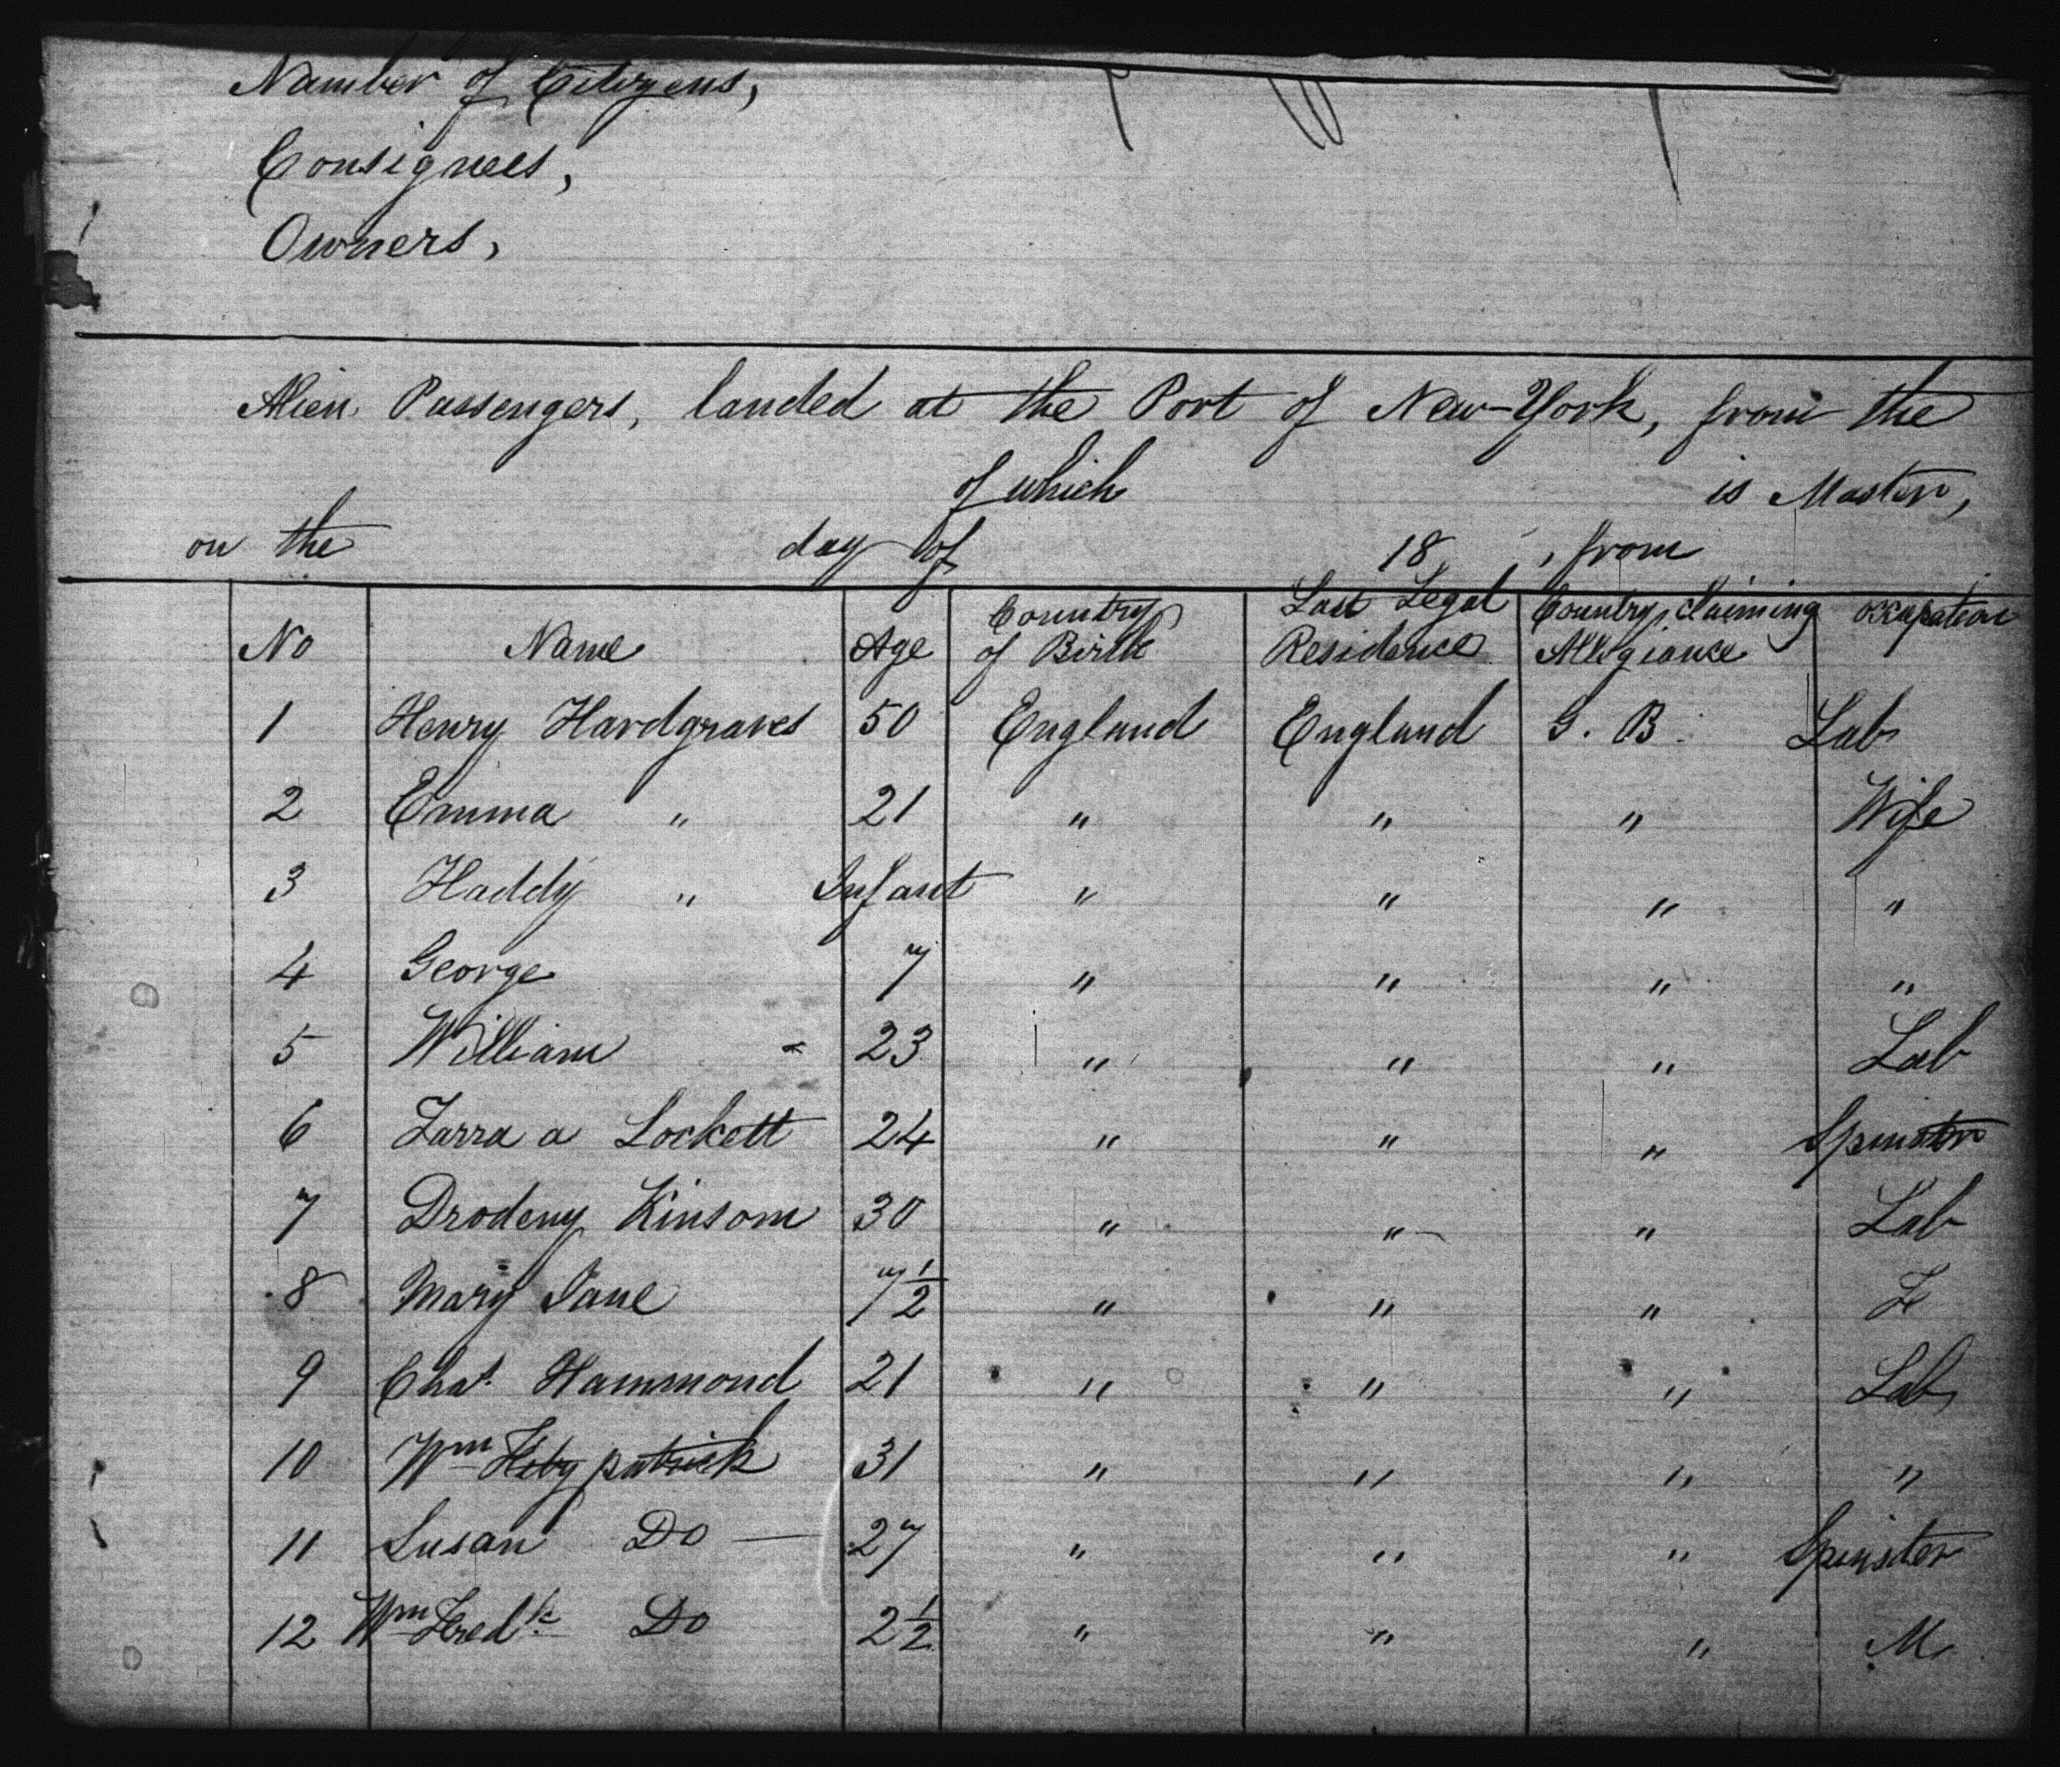 Number of Citizens,
Consignees,
Owners,
Alien Passengers, landed at the Port of New-York, from the
of which is Master,
on the day of 18 , from
No Name Age Country of Birth Last Legal Residence Country, Claiming Allegiance occupation
1 Henry Hardgraves 50 England England G. B. Lab
2 Emma " 21 " " " Wife
3 Haddy " Infant " " " "
4 George 7 " " " "
5 William " 23 " " " Lab
6 Farra a Lockett 24 " " " Spinster
7 Drodeny Kinsom 30 " " " Lab
8 Mary Jane 7½ " " " Fe
9 Chas. Hammond 21 " " " Lab
10 Wm Fitzpatrick 31 " " " "
11 Susan Do — 27 " " " Spinster
12 Wm Fredk. Do 2½ " " " M